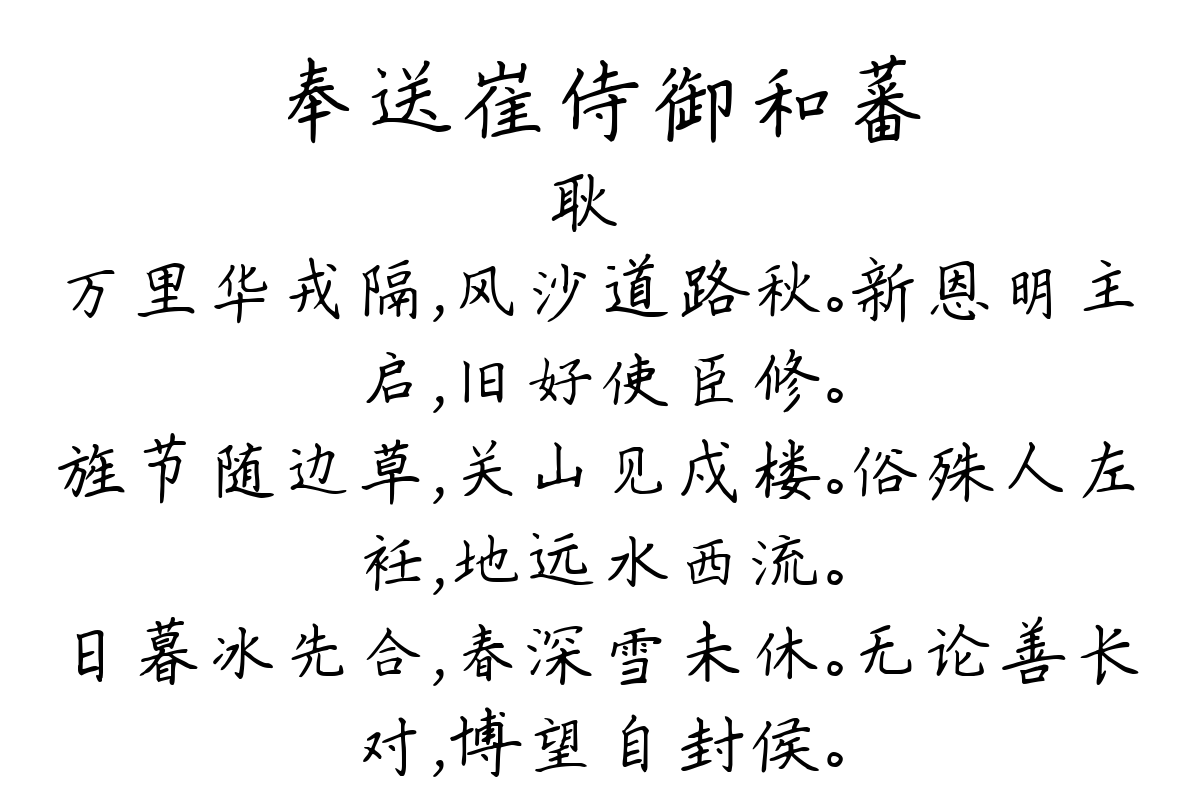 奉送崔侍御和蕃
耿
万里华戎隔,风沙道路秋。新恩明主
启,旧好使臣修。
旌节随边草,关山见戍楼。俗殊人左
衽,地远水西流。
日暮冰先合,春深雪未休。无论善长
对,博望自封侯。